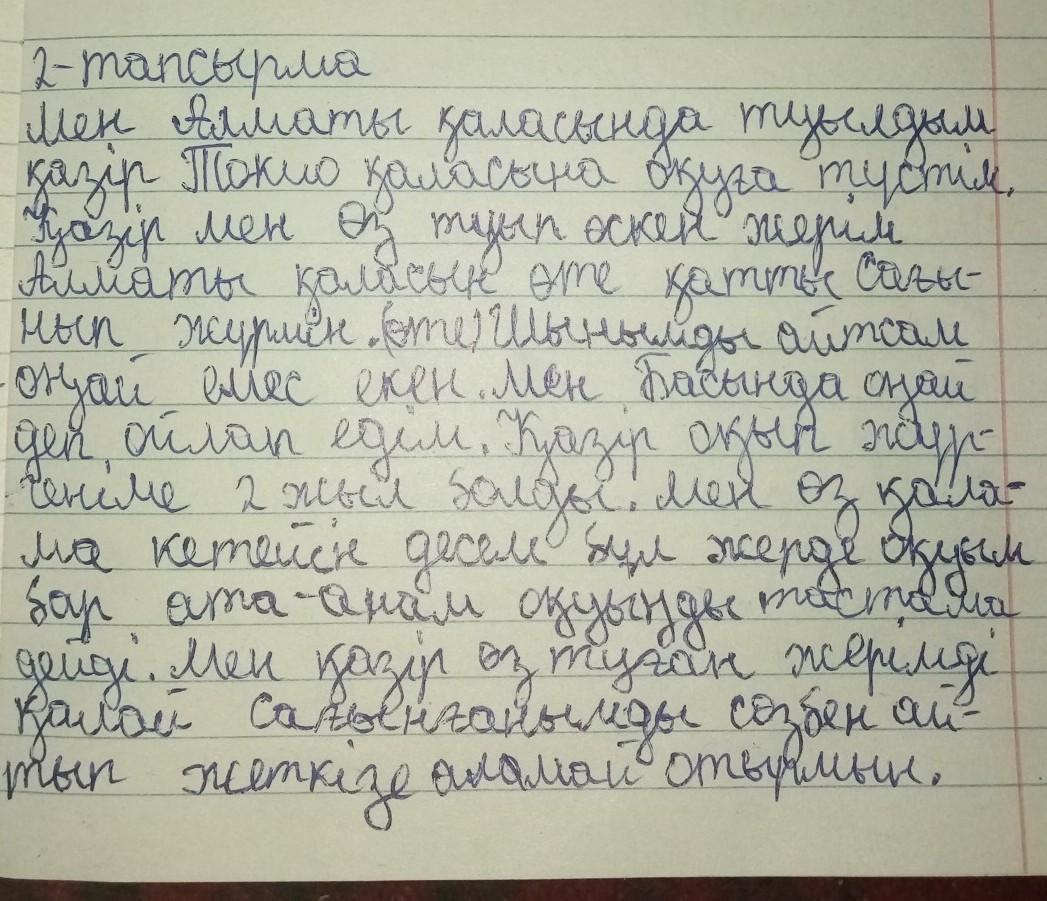 2-тапсырма
Мен Алматы қаласында туылдым
қазір Токио қаласына оқуға түстім.
Қазір мен өз туып өскен жерім
Алматы қаласын өте қатты Сағы-
нып жүрмін. (өте) Шынымды айтсам
оңай емес екен. Мен Басында оңай
деп ойлап едім. Қазір оқып жүр-
геніме 2 жыл болды. Мен өз қала-
ма кетейін десем бұл жерде оқуым
бар ата-анам оқуыңды тастама
дейді. Мен қазір өз туған жерімді
қалай Сағынғанымды сөзбен ай-
тып жеткізе аламай отырмын.